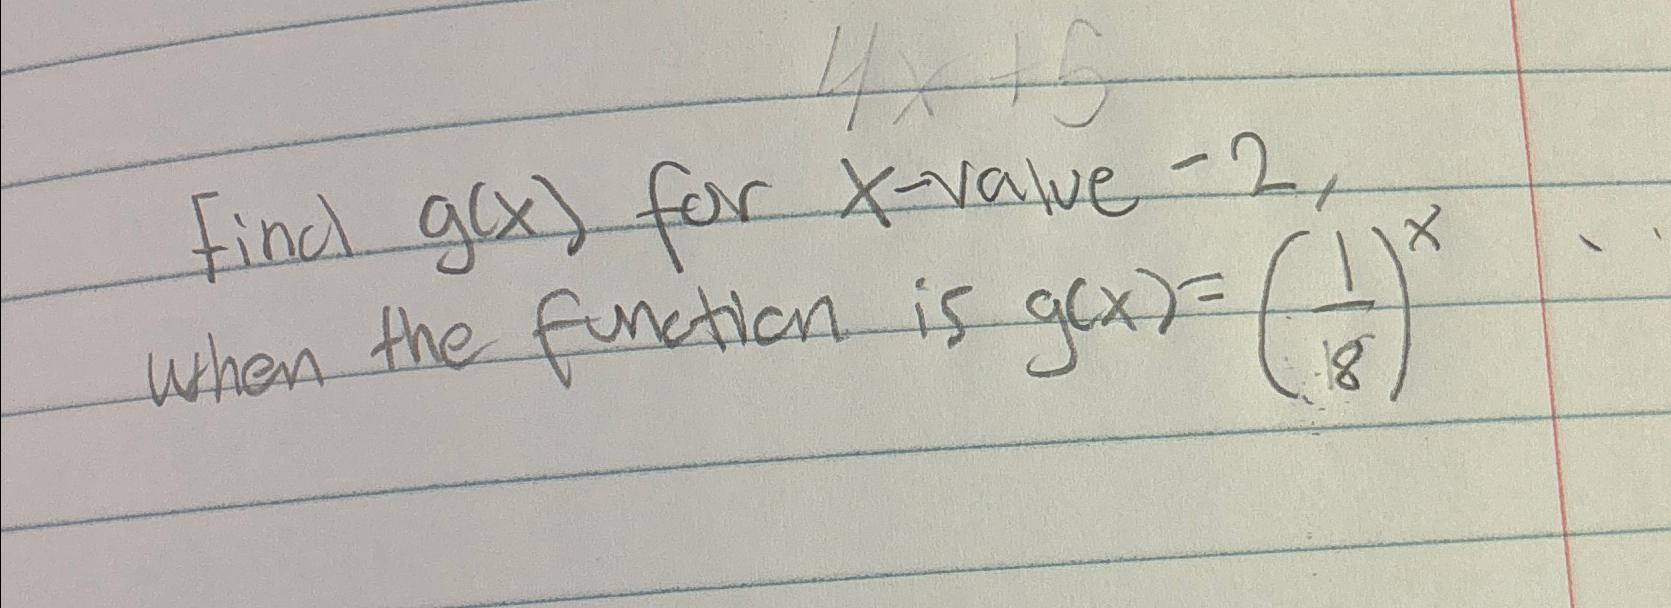 4x+5
find g(x) for x-value -2,
when the function is g(x)=(1/18)^x